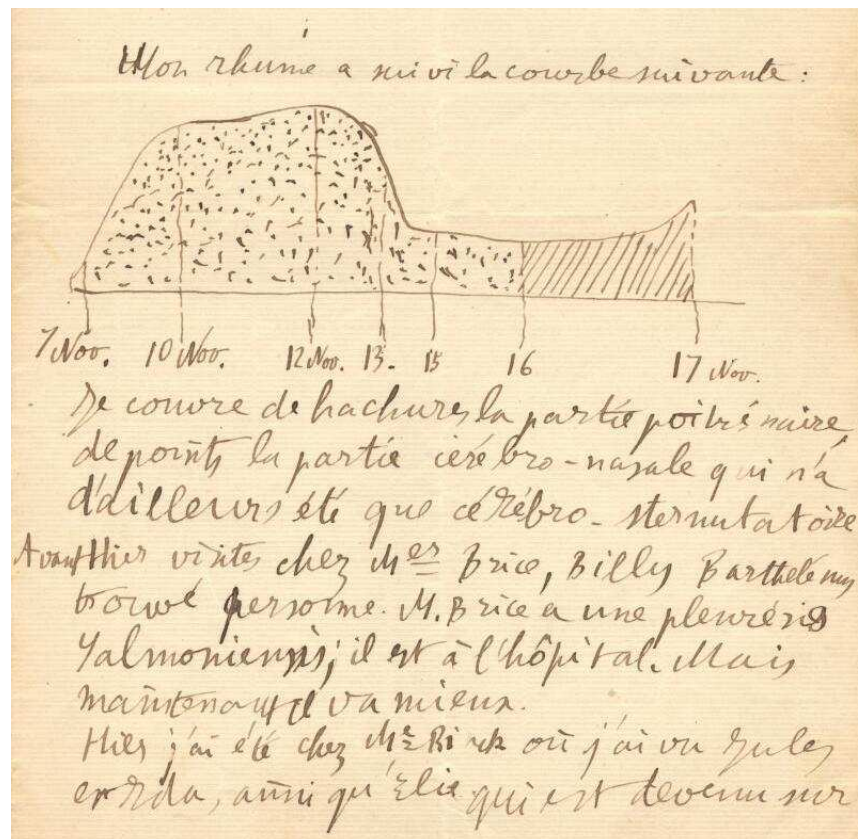 Mon rhume a suivi la courbe suivante :
7 Nov. 10 Nov. 12 Nov. 13. 15 16 17 Nov.
Je couvre de hachures la partie poitrinaire,
de points la partie cérébro-nasale qui n'a
d'ailleurs été que cérébro-sternutatoire
Avant Hier visites chez Mes Brice, Billy Barthélémy
trouvé personne. M. Brice a une pleurésie
; il est à l'hôpital. Mais
maintenant il va mieux.
Hier j'ai été chez Me où j'ai vu Jules
et Ida, ainsi qu'Elie qui est devenu sur